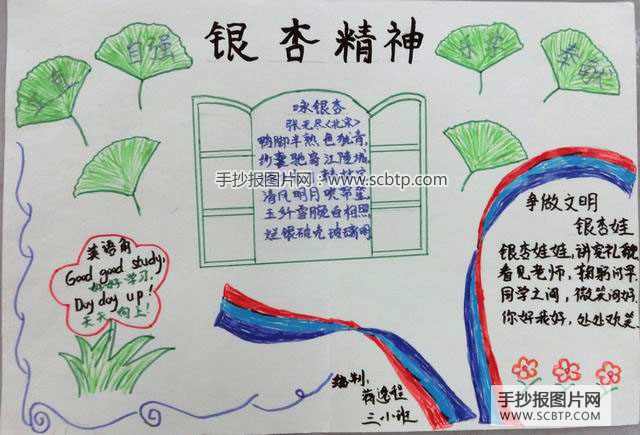 银杏精神
正直
自强
乐学
奉献
咏银杏
张无尽<北宋>
鸭脚半熟色犹青,
纱囊驰寄江陵城.
手抄报图片网:www.scbtp.com
清风明月
玉纤雪腕白相照
烂银破壳玻璃明
争做文明
银杏娃
银杏娃娃,讲究礼貌
看见老师,鞠躬问早
同学之间,微笑问好
你好我好,处处欢笑
英语角
Good good study,
好好学习,
Day day up!
天天向上!
编制:
蒋逸程
三小班
手抄报图片网
WWW.SCBTP.COM